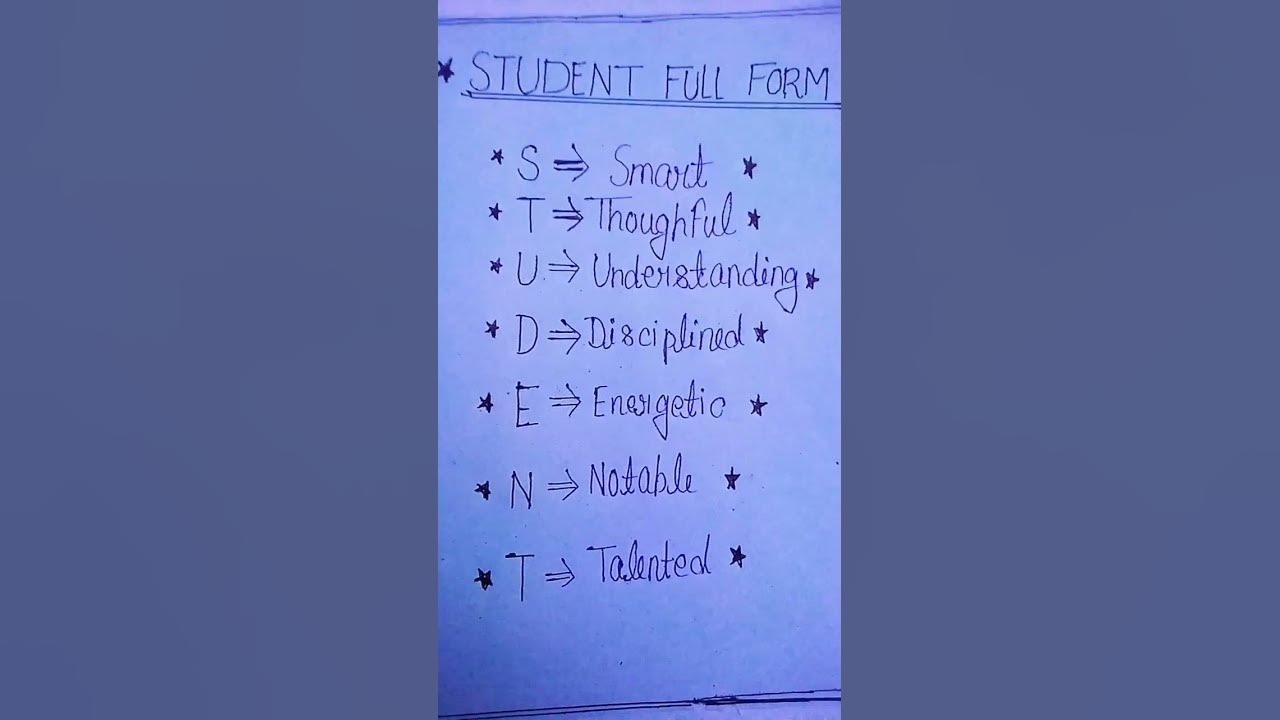 ★ STUDENT FULL FORM
★ S ⇒ Smart ★
★ T ⇒ Thoughful ★
★ U ⇒ Understanding ★
★ D ⇒ Disciplined ★
★ E ⇒ Energetic ★
★ N ⇒ Notable ★
★ T ⇒ Talented ★